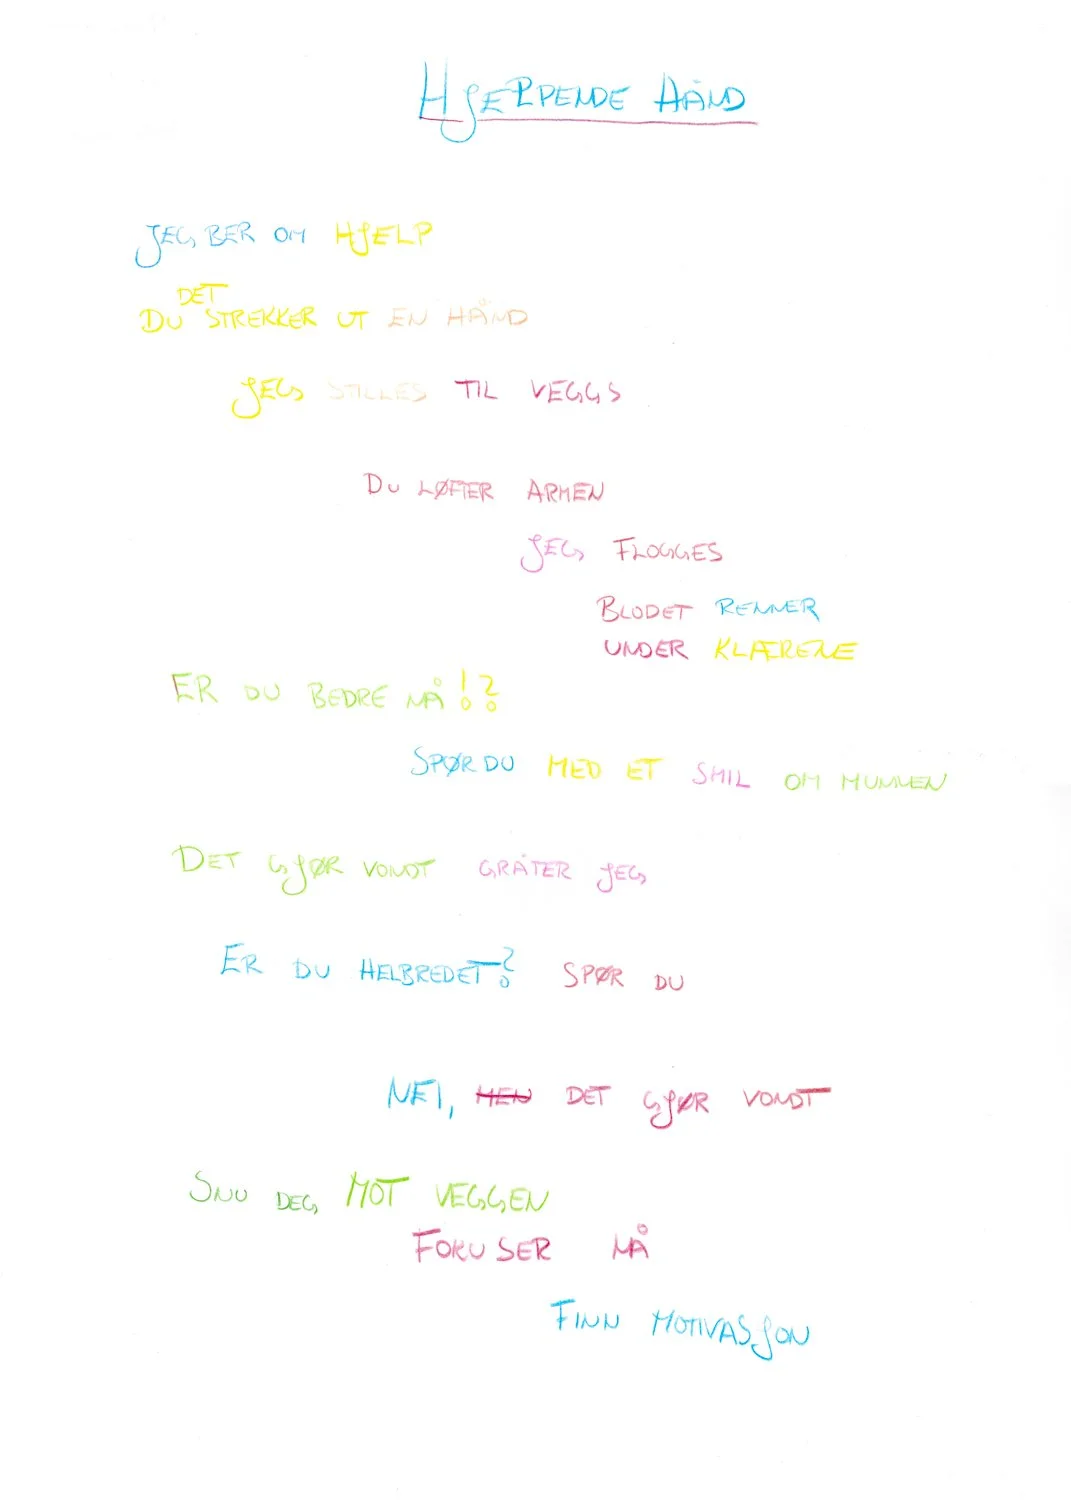 HJELPENDE HÅND
JEG BER OM HJELP
DET
DU STREKKER UT EN HÅND
JEG STILLES TIL VEGGS
DU LØFTER ARMEN
JEG FLOGGES
BLODET RENNER
UNDER KLÆRENE
ER DU BEDRE NÅ!?
SPØR DU MED ET SMIL OM MUNNEN
DET GJØR VONDT GRÅTER JEG
ER DU HELBREDET? SPØR DU
NEI, MEN DET GJØR VONDT
SNU DEG MOT VEGGEN
FOKUSER NÅ
FINN MOTIVASJON